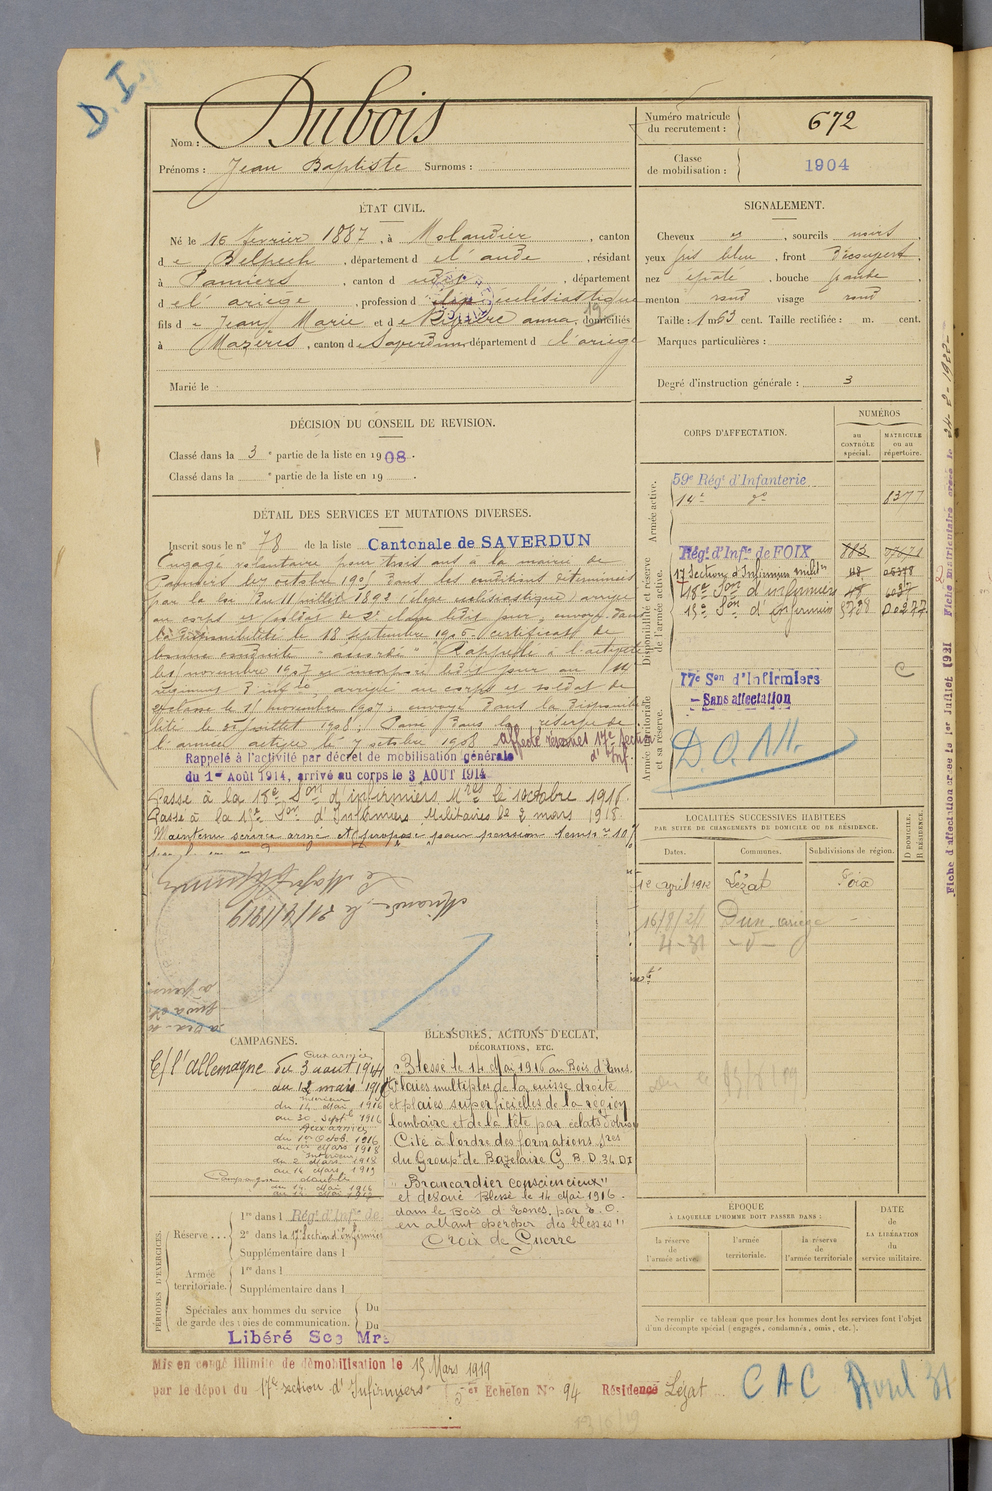 D. I.
Nom : Dubois
Prénoms : Jean Baptiste Surnoms :
Numéro matricule du recrutement : 672
Classe de mobilisation : 1904
ÉTAT CIVIL.
Né le 16 fevrier 1887, à Molandier, canton
de Belpech, département de l'aude, résidant
à Pamiers, canton d udit, département
de l'ariege, profession d' éleve ecclésiastique
fils de Jean Marie et de anna, domiciliés
à Mazères, canton de Saverdun, département d l'ariege
Marié le
SIGNALEMENT.
Cheveux , sourcils noirs
yeux gris bleu, front découvert
nez epaté, bouche grande
menton rond visage rond
Taille : 1 m 63 cent. Taille rectifiée : m. cent.
Marques particulières :
Degré d'instruction générale : 3
DÉCISION DU CONSEIL DE REVISION.
Classé dans la 3e partie de la liste en 1908.
Classé dans la e partie de la liste en 19 .
DÉTAIL DES SERVICES ET MUTATIONS DIVERSES.
Inscrit sous le n° 78 de la liste Cantonale de SAVERDUN
Engagé volontaire pour trois ans à la mairie de
Pamiers le 7 octobre 1905 dans les conditions déterminées
par la loi du 11 juillet 1892 (élève ecclésiastique) arrivé
au corps et soldat de 2e classe le dit jour, envoyé dans
la disponibilité le 18 septembre 1906. Certificat de
bonne conduite "accordé" Rappelé à l'activité
le novembre 1907 et incorporé
régiment d'infie, arrivé au corps et soldat de
2e classe le novembre 1907, envoyé dans la disponibi
lité le juillet 1908. Passé dans la réserve de
l'armée active le 7 octobre 1908 affecté réserves 17e Section
d'Inf.
Rappelé à l'activité par décret de mobilisation générale
du 1er Août 1914, arrivé au corps le 3 AOUT 1914
Passé à la 18e Son d'infirmiers Mres le 1er octobre 1916
Passé à la Son d'Infirmiers Militaires le 2 mars 1918
Maintenu service armé et proposé pour pension
Le Major
Mirande, le 21/4/1919
CORPS D'AFFECTATION.
NUMÉROS
au CONTRÔLE spécial.
MATRICULE ou au répertoire.
Armée active.
59e Régt d'Infanterie
14e do 8377
Disponibilité et réserve de l'armée active.
Régt d'Infie de FOIX 883
17 Section d'Infirmiers milit
18e Son d'infirmiers
15e Son d'Infirmiers
Armée territoriale et sa réserve.
17e Son d'Infirmiers
- Sans affectation
C
D.O.M.
LOCALITÉS SUCCESSIVES HABITÉES
PAR SUITE DE CHANGEMENTS DE DOMICILE OU DE RÉSIDENCE.
Dates. Communes. Subdivisions de région. D DOMICILE. R RÉSIDENCE.
12 avril 1912 Lézat Foix
Dun ariège
4-31
CAMPAGNES.
C/ l'allemagne aux armées
du 3 aout 1914
au 12 mai 1916
Intérieur
du 14 Mai 1916
au 30 Septb 1916
Aux armées
du 1er Octob. 1916
au 1er Mars 1918
Intérieur
du 2 Mars 1918
au 14 Mars 1919
Campagne double
BLESSURES, ACTIONS D'ÉCLAT,
DÉCORATIONS, ETC.
Blessé le 14 Mai 1916 au Bois d'Esnes.
Plaies multiples de la cuisse droite
et plaies superficielles de la région
lombaire et de la tête par éclats d'obus
Cité à l'ordre des formations
du Groupt de Bazelaire G.B.D. 34 DI
"Brancardier consciencieux"
et dévoué Blessé le 14 Mai 1916
dans le Bois d'Esnes, par E.O.
en allant chercher des blessés"
Croix de Guerre
PÉRIODES D'EXERCICES.
Réserve ... 1re dans l Régt d'Infie de
2e dans la 17 Section d'Infirmiers
Supplémentaire dans l
Armée territoriale. 1re dans l
Supplémentaire dans l
Spéciales aux hommes du service de garde des voies de communication. Du
Du
Libéré Sce Mre
ÉPOQUE
À LAQUELLE L'HOMME DOIT PASSER DANS :
la réserve de l'armée active
l'armée territoriale.
la réserve de l'armée territoriale
DATE DE LA LIBÉRATION du service militaire.
Ne remplir ce tableau que pour les hommes dont les services font l'objet
d'un décompte spécial (engagés, condamnés, omis, etc.).
Mis en congé illimité de démobilisation le 15 Mars 1919
par le dépôt du 17e section d'Infirmiers Echelon N° 94 Résidence Lézat
CAC Avril 31
Fiche d'affectation créée le 1er Juillet 1931